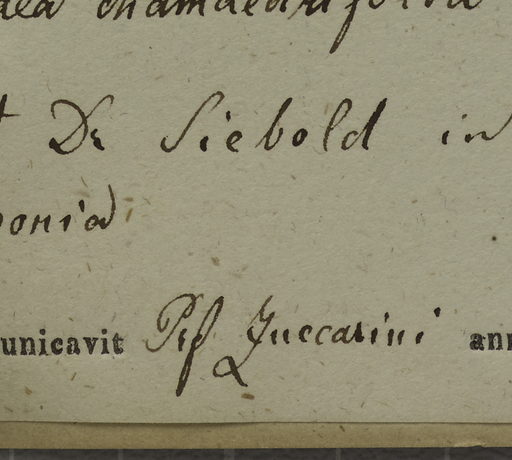 aea chamaedrifolia
t Dr Siebold in
ponia
unicavit Prf Zuccarini ann